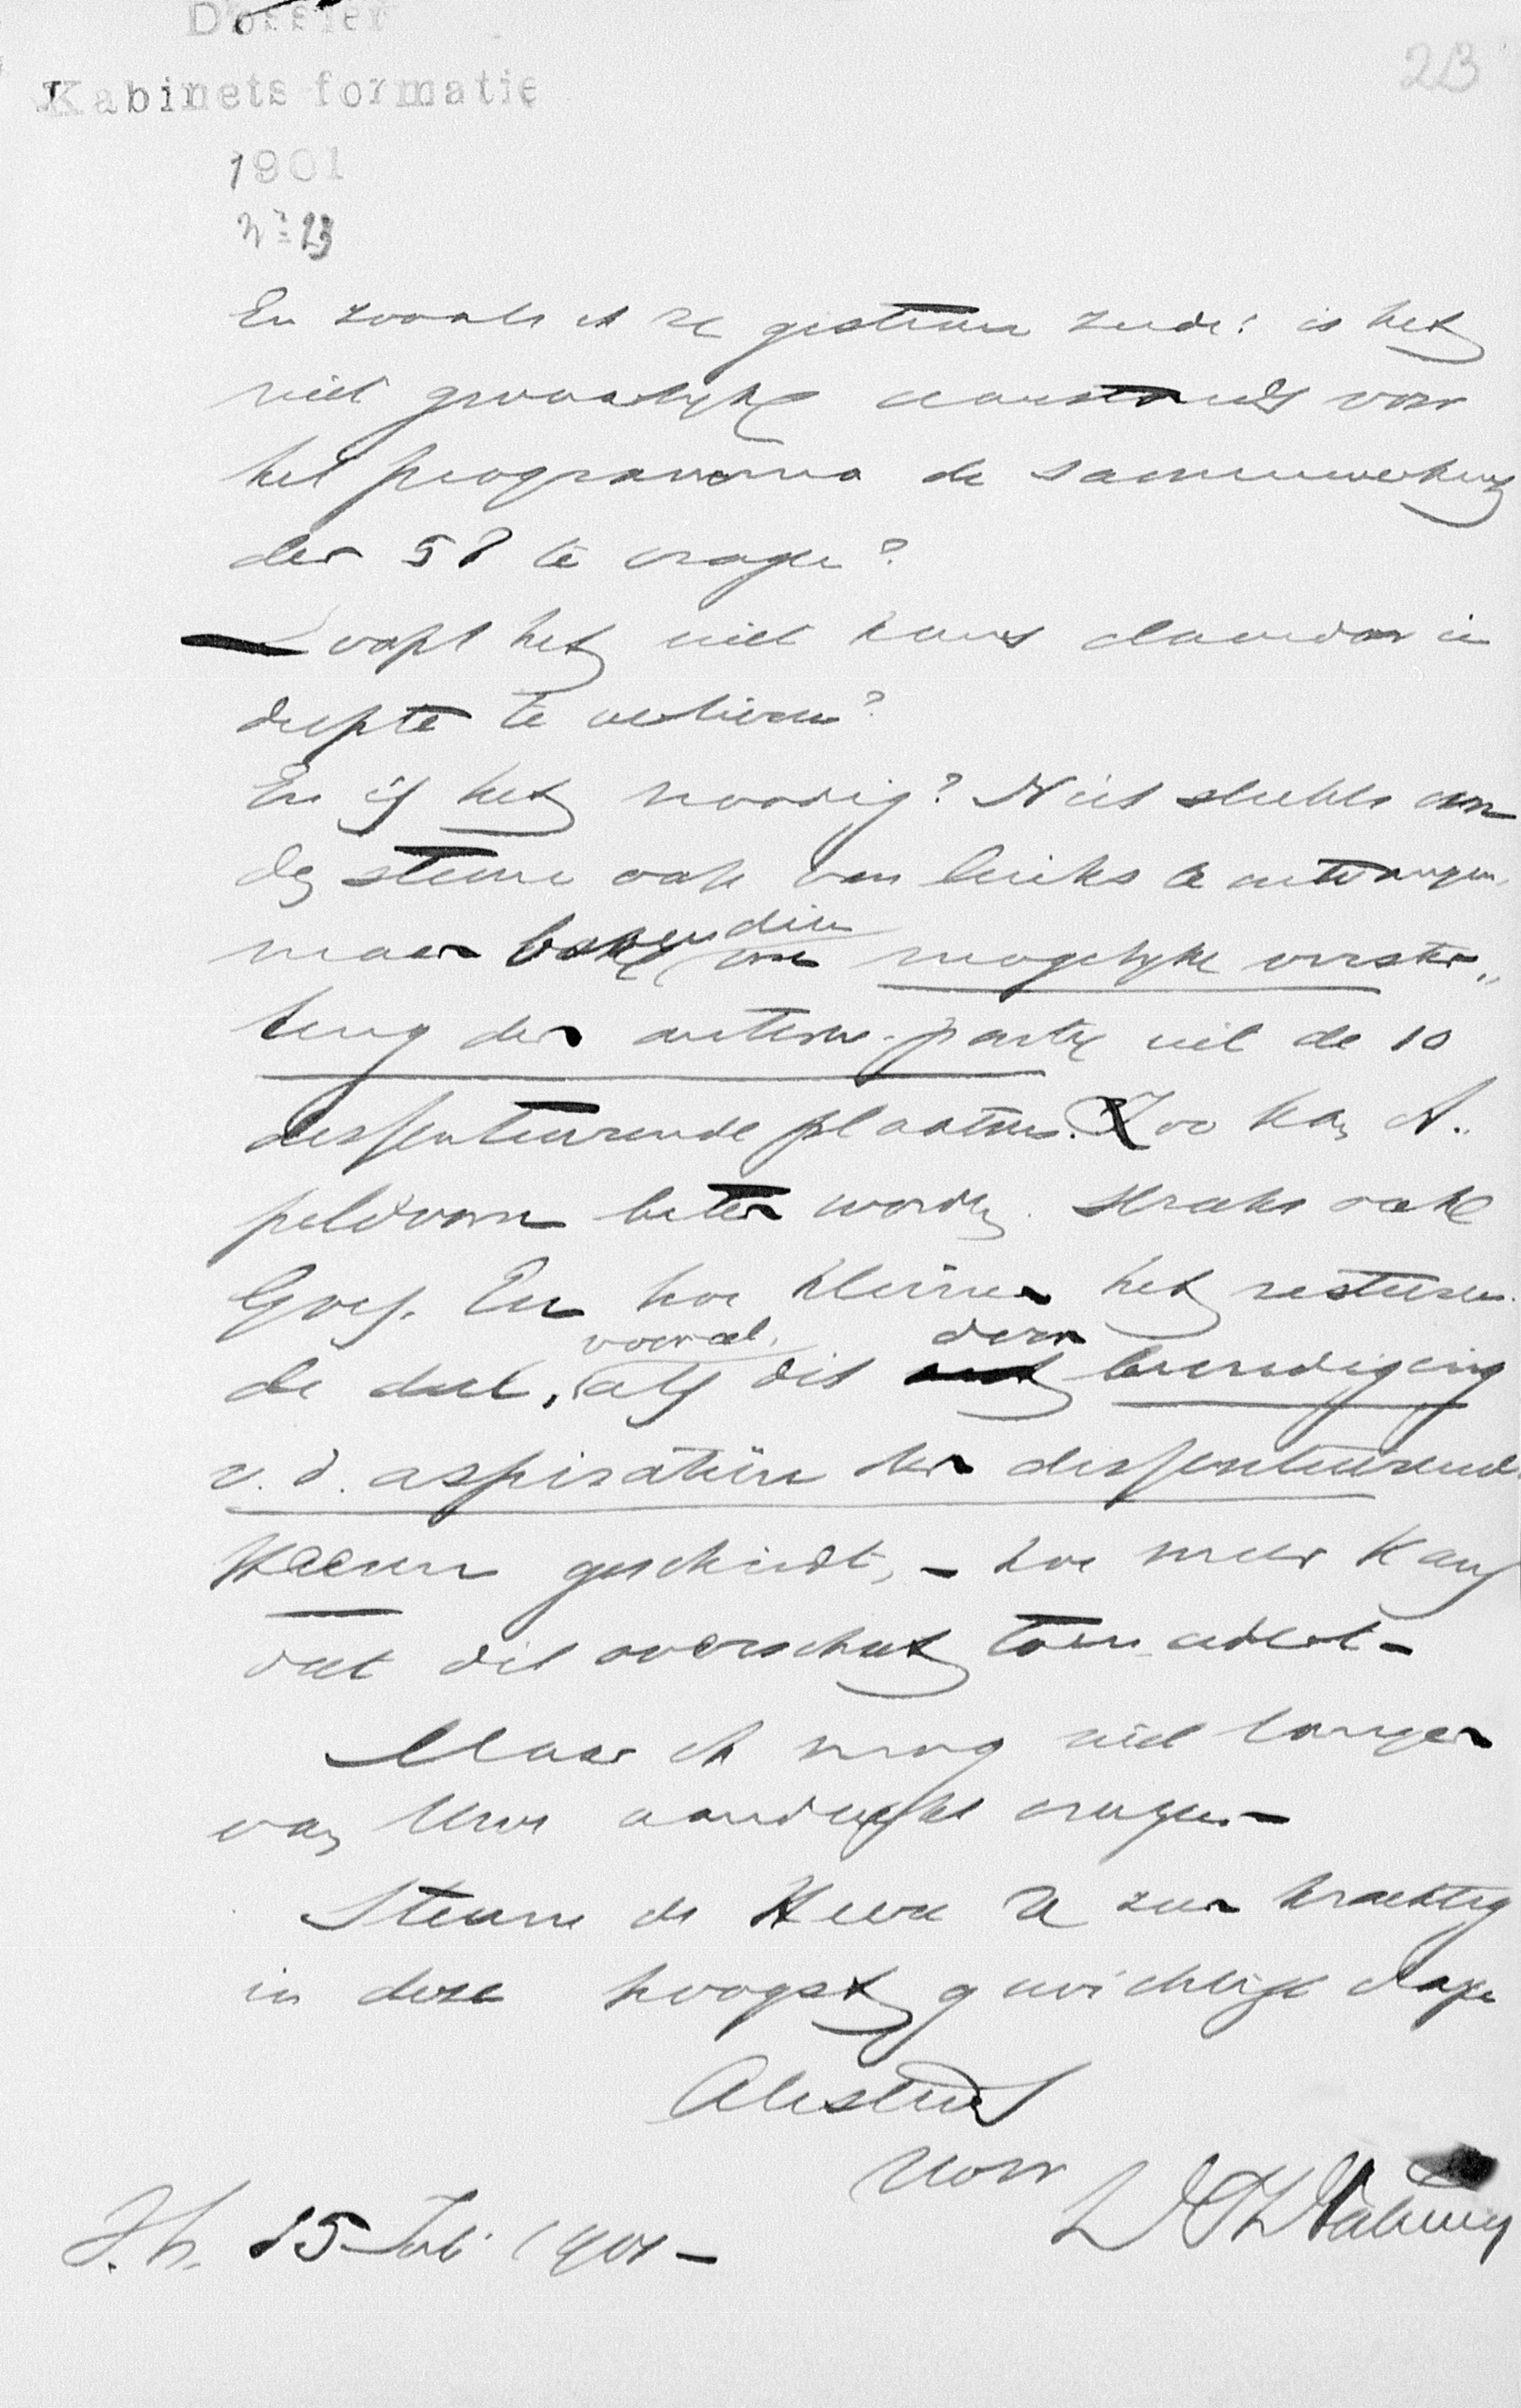 Dossier
Kabinetsformatie
1901
No 23
23
En zooals ik U gisteren zeide: is het
niet gevaarlijk aanstonds voor
het programma de samenwerking
der 58 te vragen?
Loopt het niet kans daardoor in
diepte te verliezen?
En is het noodig? Niet slechts om
de steun ook van links te ontvangen,
maar bovendien om mogelijke verster„
king der antirev. partij uit de 10
dissentieerende plaatsen. Zoo kan A„
peldoorn beter worden. Straks ook
Goes. En hoe kleiner het resteeren„
de deel, vooral als dit door bevrediging
v. d. aspiratiën der dissentieerende
Heeren geschiedt, – hoe meer kans
dat dit overschot toenadert –
Maar ik mag niet langer
van Uwe aandacht vragen –
Steune de Heere U zeer krachtig
in deze hoogst gewichtige dagen
Uw
d. H. 15 Juli 1901 –